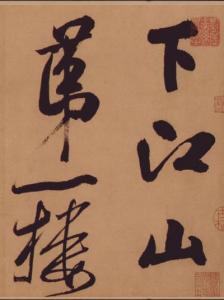 下江山
第一楼